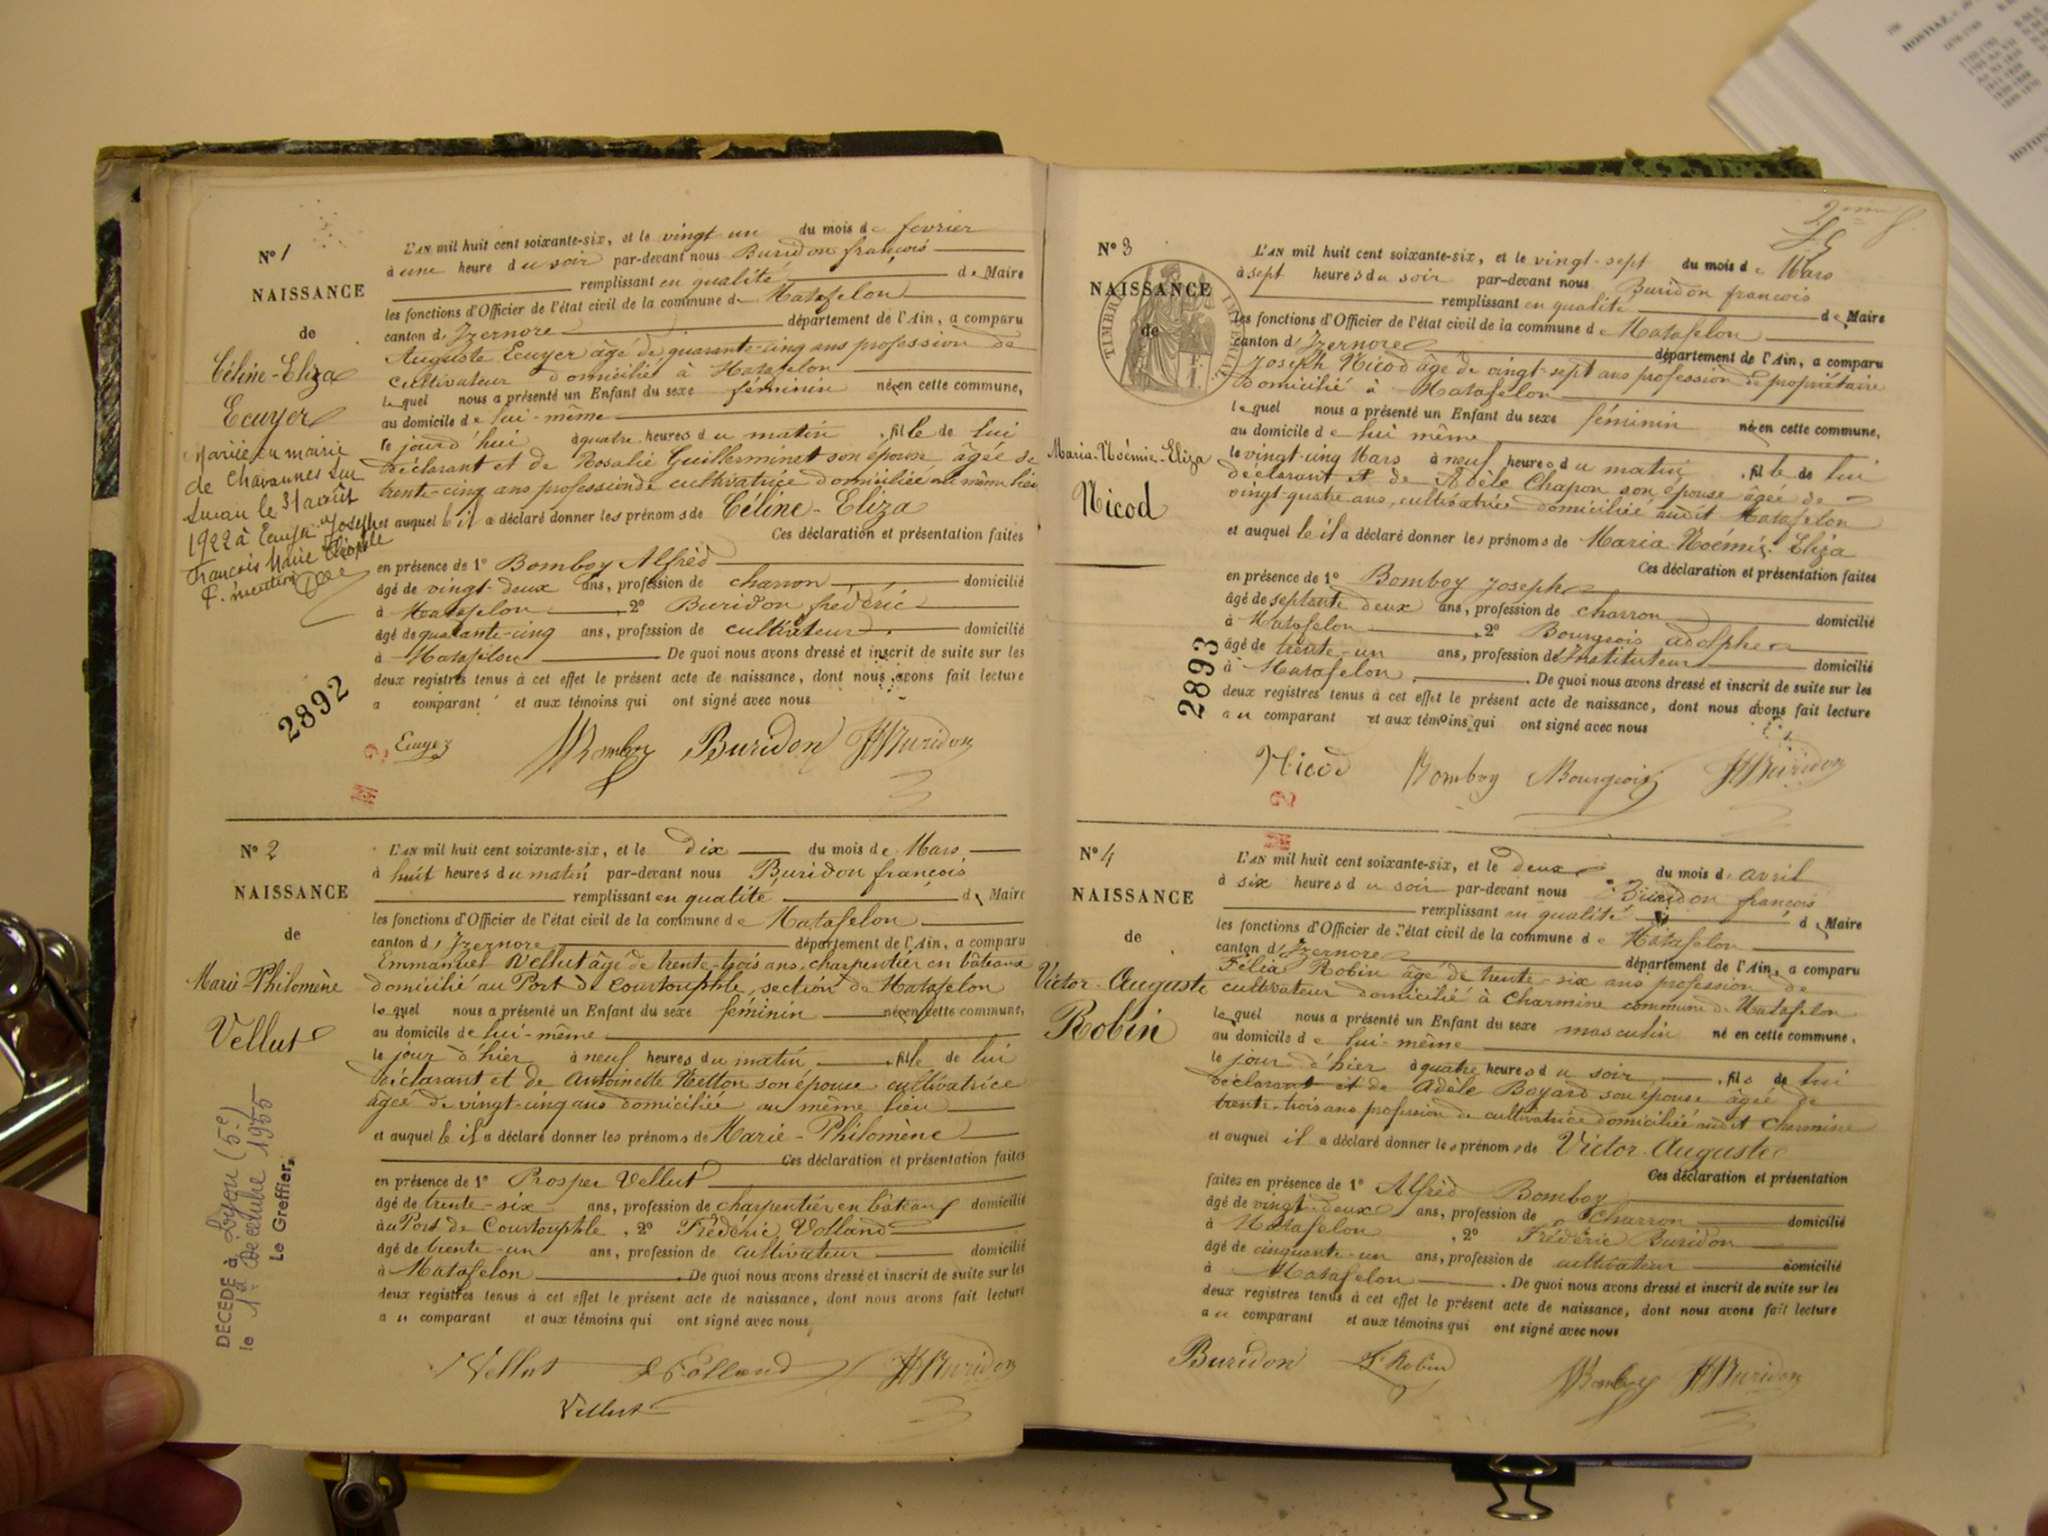 N° 1
NAISSANCE
de
Céline-Eliza
Ecuyer
Mariée en mairie
de Chavannes sur
Suran le 31 août
1922 à Joseph
François Marie
L'AN mil huit cent soixante-six, et le vingt un du mois de fevrier
à une heure du soir par-devant nous Buridon françois
remplissant en qualité de Maire
les fonctions d'Officier de l'état civil de la commune de Matafelon
canton d'Izernore département de l'Ain, a comparu
Auguste Ecuyer âgé de quarante-cinq ans profession de
cultivateur domicilié à Matafelon
lequel nous a présenté un Enfant du sexe féminin né en cette commune,
au domicile de lui-même
le jourd'hui à quatre heures du matin, fille de lui
déclarant et de Rosalie Guillerminet son épouse âgée de
trente-cinq ans profession de cultivatrice domiciliée au même lieu
et auquel il a déclaré donner les prénoms de Céline-Eliza
Ces déclaration et présentation faites
en présence de 1° Bomboy Alfred
âgé de vingt-deux ans, profession de charron domicilié
à Matafelon 2° Buridon frédéric
âgé de quarante-cinq ans, profession de cultivateur domicilié
à Matafelon De quoi nous avons dressé et inscrit de suite sur les
deux registres tenus à cet effet le présent acte de naissance, dont nous avons fait lecture
a comparant et aux témoins qui ont signé avec nous
2892
Ecuyer Bomboy Buridon Buridon
N° 2
NAISSANCE
de
Marie-Philomène
Vellut
DÉCÉDÉ à Loyon (5e)
le 1er décembre 1955
Le Greffier,
L'AN mil huit cent soixante-six, et le dix du mois de Mars
à huit heures du matin par-devant nous Buridon françois
remplissant en qualité de Maire
les fonctions d'Officier de l'état civil de la commune de Matafelon
canton d'Izernore département de l'Ain, a comparu
Emmanuel Vellut âgé de trente-trois ans, charpentier en bâteaux
domicilié au Port de Courtouphle, section de Matafelon
lequel nous a présenté un Enfant du sexe féminin né en cette commune,
au domicile de lui-même
le jour d'hier à neuf heures du matin, fille de lui
déclarant et de Antoinette Netton son épouse cultivatrice
âgée de vingt-cinq ans domiciliée au même lieu
et auquel il a déclaré donner les prénoms de Marie-Philomène
Ces déclaration et présentation faites
en présence de 1° Prosper Vellut
âgé de trente-six ans, profession de charpentier en bâteaux domicilié
au Port de Courtouphle, 2° Frédéric Volland
âgé de trente-un ans, profession de cultivateur domicilié
à Matafelon. De quoi nous avons dressé et inscrit de suite sur les
deux registres tenus à cet effet le présent acte de naissance, dont nous avons fait lecture
au comparant et aux témoins qui ont signé avec nous,
Vellut Volland Buridon
Vellut
N° 3
NAISSANCE
de
Maria-Noémie-Eliza
Nicod
TIMBRE IMPÉRIAL
L'AN mil huit cent soixante-six, et le vingt-sept du mois de Mars
à sept heures du soir par-devant nous Buridon françois
remplissant en qualité de Maire
les fonctions d'Officier de l'état civil de la commune de Matafelon
canton d'Izernore département de l'Ain, a comparu
Joseph Nicod âgé de vingt-sept ans profession de propriétaire
domicilié à Matafelon
lequel nous a présenté un Enfant du sexe féminin né en cette commune,
au domicile de lui même
le vingt-cinq Mars à neuf heures du matin, fille de lui
déclarant et de Adèle Chapon son épouse âgée de
vingt-quatre ans, cultivatrice domiciliée audit Matafelon
et auquel il a déclaré donner les prénoms de Maria-Noémie-Eliza
Ces déclaration et présentation faites
en présence de 1° Bomboy Joseph
âgé de septante deux ans, profession de charron domicilié
à Matafelon, 2° Bourgeois adolphe
âgé de trente-un ans, profession de Instituteur domicilié
à Matafelon. De quoi nous avons dressé et inscrit de suite sur les
deux registres tenus à cet effet le présent acte de naissance, dont nous avons fait lecture
au comparant et aux témoins qui ont signé avec nous
2893
Nicod Bomboy Bourgeois Buridon
N° 4
NAISSANCE
de
Victor-Auguste
Robin
L'AN mil huit cent soixante-six, et le deux du mois d'avril
à six heures du soir par-devant nous Buridon françois
remplissant en qualité de Maire
les fonctions d'Officier de l'état civil de la commune de Matafelon
canton d'Izernore département de l'Ain, a comparu
Félix Robin âgé de trente-six ans profession de
cultivateur domicilié à Charmine commune de Matafelon
lequel nous a présenté un Enfant du sexe masculin né en cette commune,
au domicile de lui-même
le jour d'hier à quatre heures du soir, fils de lui
déclarant et de Adèle Boyard son épouse âgée de
trente-trois ans profession de cultivatrice domiciliée audit Charmine
et auquel il a déclaré donner les prénoms de Victor-Auguste
Ces déclaration et présentation
faites en présence de 1° Alfred Bomboy
âgé de vingt-deux ans, profession de charron domicilié
à Matafelon, 2° Frédéric Buridon
âgé de cinquante-un ans, profession de cultivateur domicilié
à Matafelon. De quoi nous avons dressé et inscrit de suite sur les
deux registres tenus à cet effet le présent acte de naissance, dont nous avons fait lecture
au comparant et aux témoins qui ont signé avec nous
Buridon F. Robin Bomboy Buridon